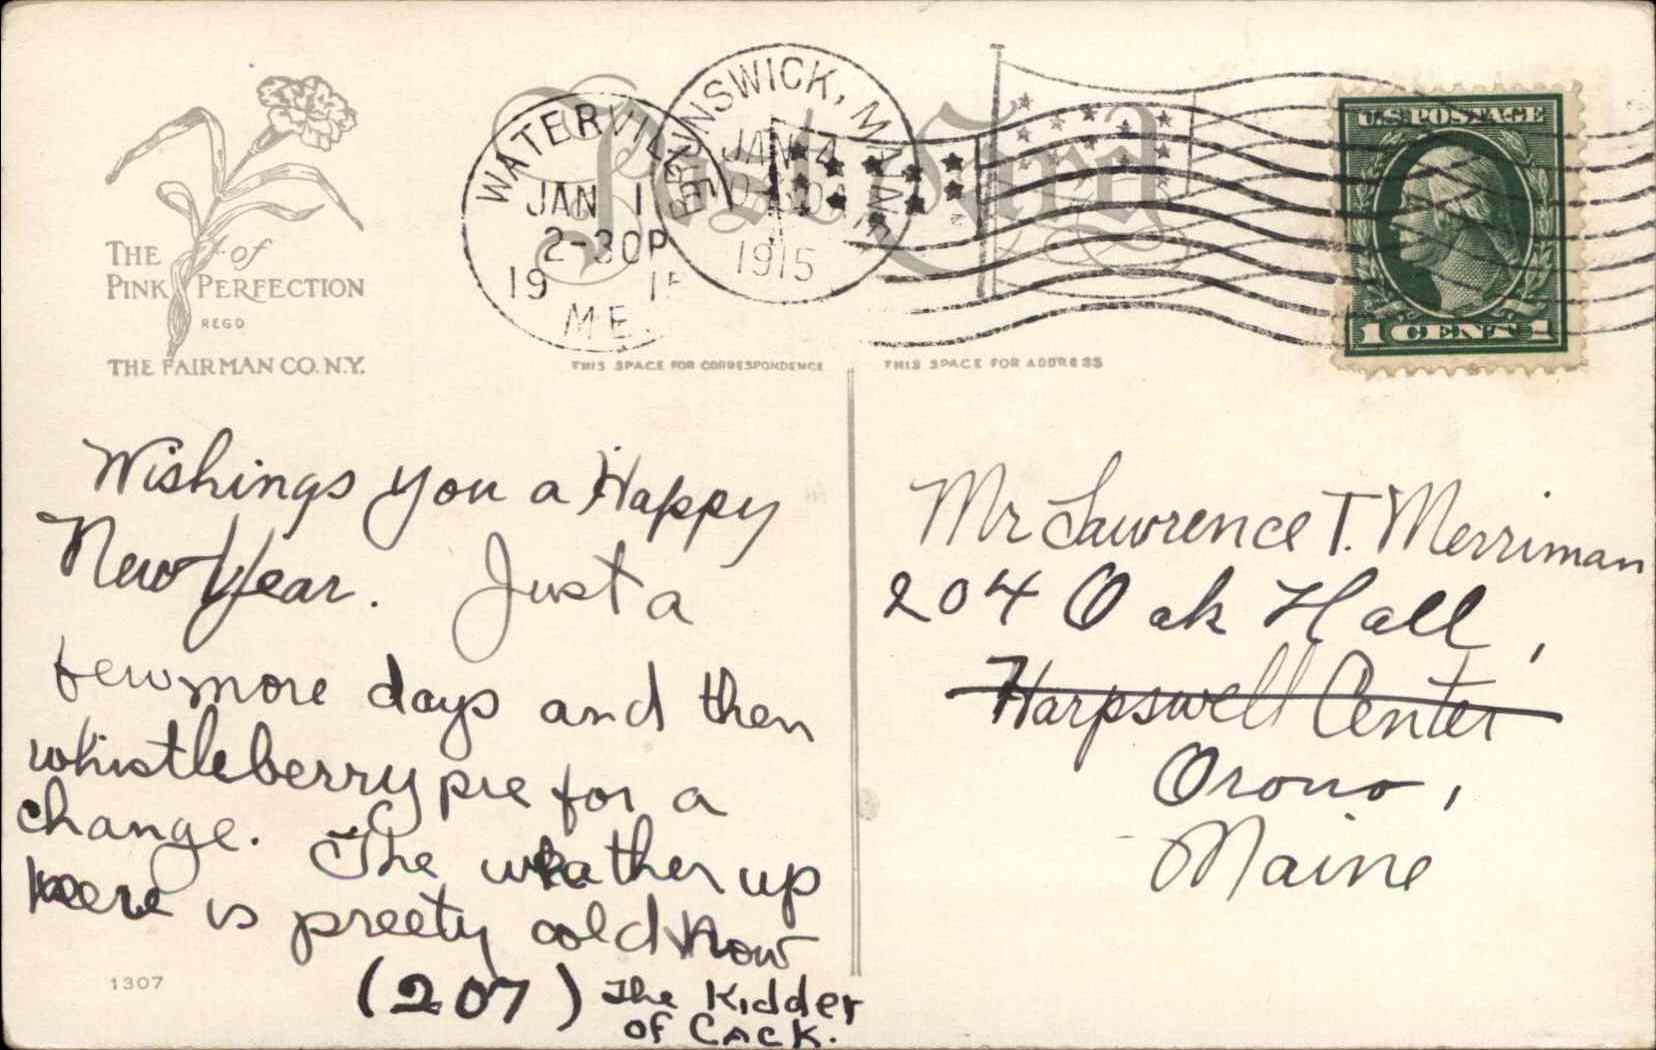 Post Card
WATERVILLE
JAN 1
2-30P
19 15
ME.
BRUNSWICK, MAINE
JAN 4
1915
U.S. POSTAGE
1 CENT 1
THE of
PINK PERFECTION
REGD
THE FAIRMAN CO. N.Y.
THIS SPACE FOR CORRESPONDENCE
THIS SPACE FOR ADDRESS
Wishings you a Happy
New Year. Just a
few more days and then
whistleberry pie for a
change. The weather up
heere is preety cold now
(207) The Kidder
of CACK.
1307
Mr Lawrence T. Merriman
204 Oak Hall,
Harpswell Center
Orono,
Maine